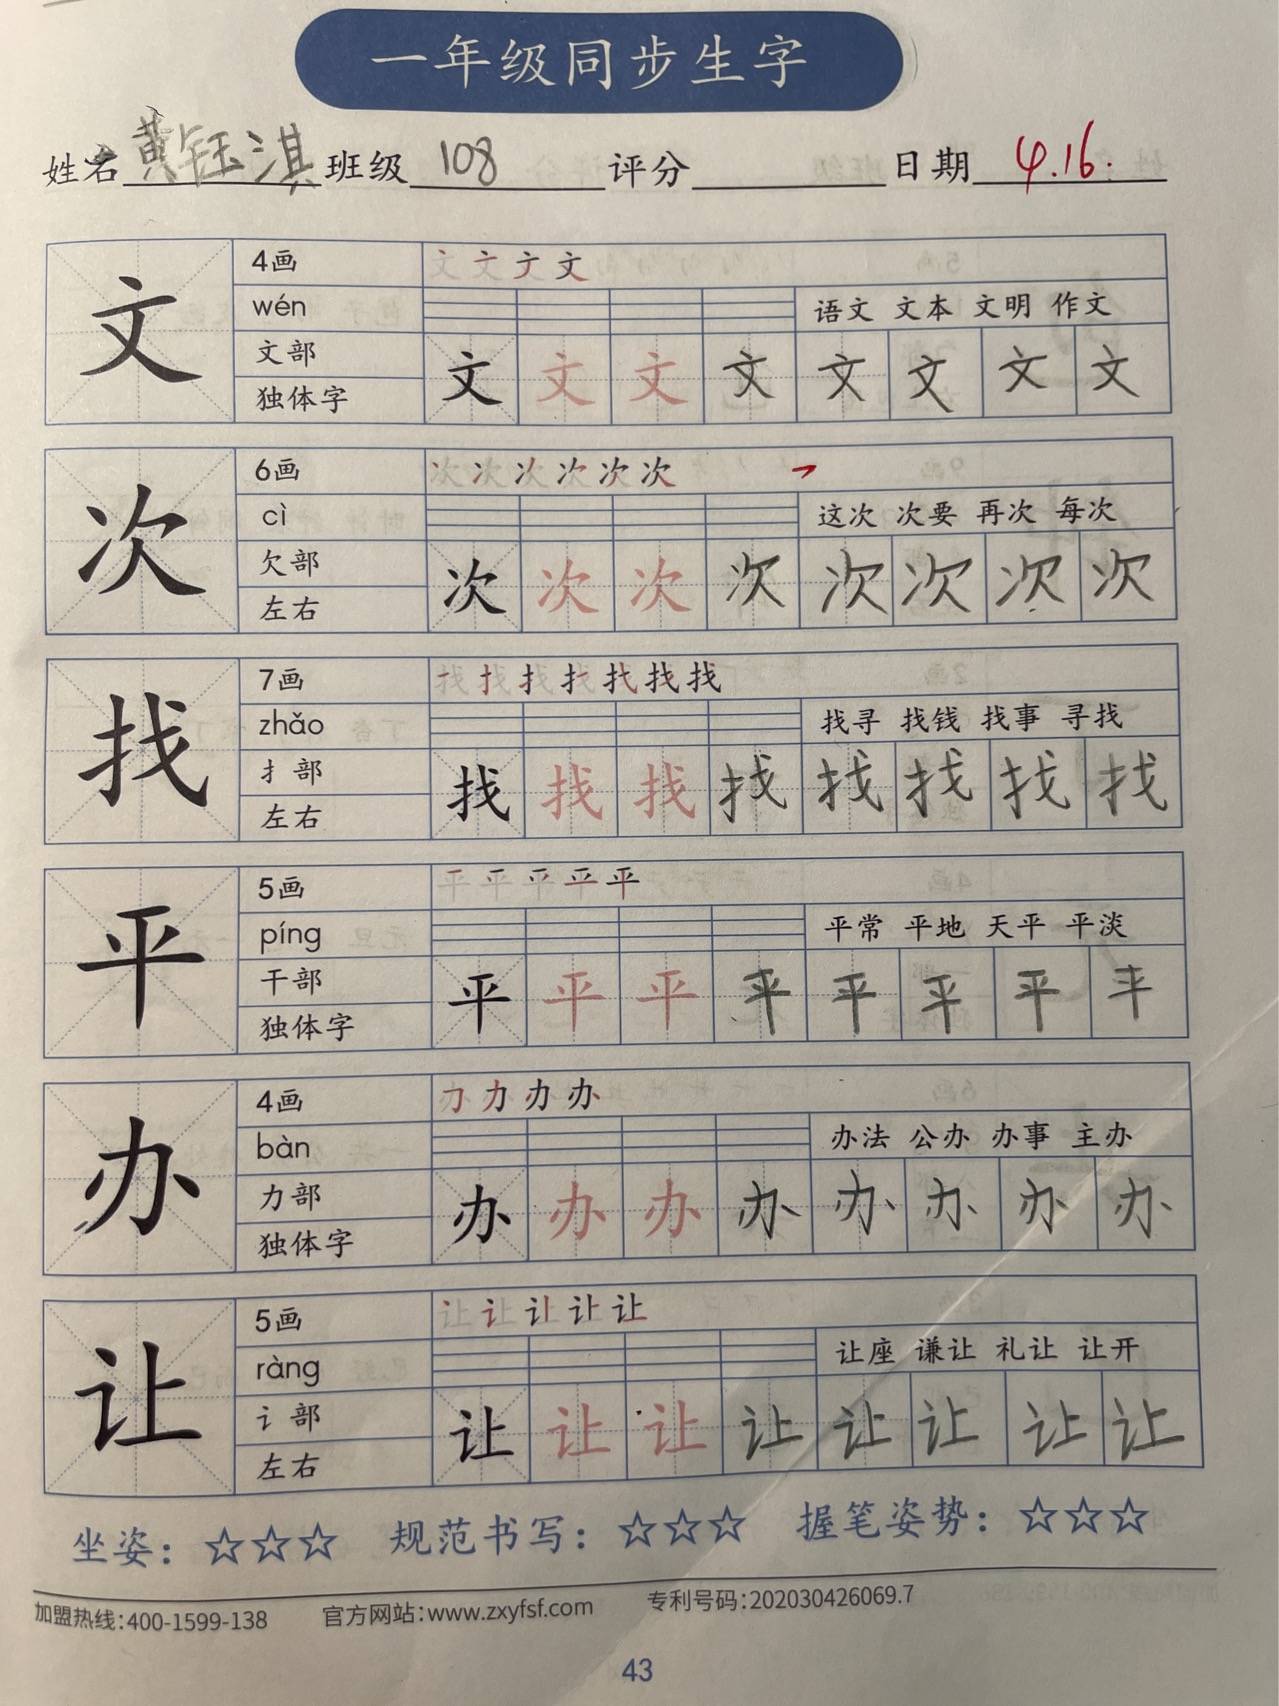 一年级同步生字
姓名 黄钰淇 班级 108 评分 日期 4.16.
文 4画 文 文 文 文
wén 语文 文本 文明 作文
文部 文 文 文 文 文 文 文 文
独体字
次 6画 次 次 次 次 次 次
cì 这次 次要 再次 每次
欠部 次 次 次 次 次 次 次 次
左右
找 7画 找 找 找 找 找 找 找
zhǎo 找寻 找钱 找事 寻找
扌部 找 找 找 找 找 找 找 找
左右
平 5画 平 平 平 平 平
píng 平常 平地 天平 平淡
干部 平 平 平 平 平 平 平 平
独体字
办 4画 办 办 办 办
bàn 办法 公办 办事 主办
力部 办 办 办 办 办 办 办 办
独体字
让 5画 让 让 让 让 让
ràng 让座 谦让 礼让 让开
讠部 让 让 让 让 让 让 让 让
左右
坐姿：☆☆☆ 规范书写：☆☆☆ 握笔姿势：☆☆☆
加盟热线:400-1599-138 官方网站:www.zxyfsf.com 专利号码:202030426069.7
43